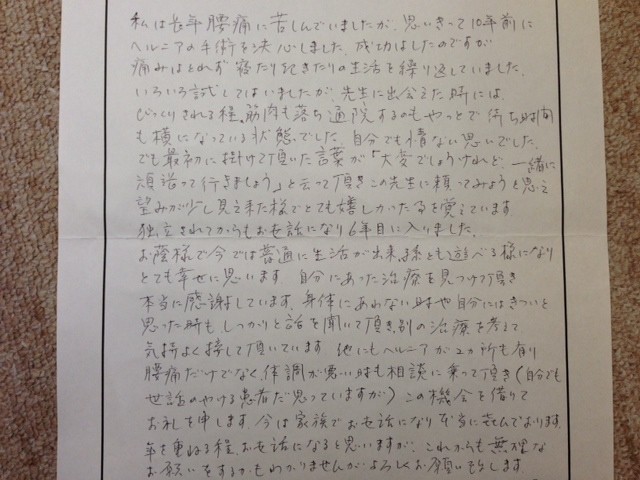 私は長年腰痛に苦しんでいましたが、思いきって10年前に
ヘルニアの手術を決心しました。成功はしたのですが
痛みはとれず寝たり起きたりの生活を繰り返していました。
いろいろ試してはいましたが、先生に出会えた時には
びっくりされる程、筋肉も落ち通院するのもやっとで待ち時間
も横になっている状態でした。自分でも情ない思いでした。
でも最初に掛けて頂いた言葉が「大変でしょうけれど、一緒に
頑張って行きましょう」と云って頂きこの先生に頼ってみようと思え
望みが少し見えて来た様でとても嬉しかった事を覚えています。
独立されてからもお世話になり6年目に入りました。
お蔭様で今では普通に生活が出来、孫とも遊べる様になり
とても幸せに思います。自分にあった治療を見つけて頂き
本当に感謝しています。身体にあわない時や自分にはきついと
思った時もしっかりと話を聞いて頂き、別の治療を考えて
気持よく接して頂いています。他にもヘルニアが2ヵ所も有り
腰痛だけでなく、体調が悪い時も相談に乗って頂き(自分でも
世話のやける患者だと思っていますが)この機会を借りて
お礼を申します。今は家族でお世話になり本当に喜んでおります。
年を重ねる程、お世話になると思いますが、これからも無理な
お願いをするかもわかりませんがよろしくお願い致します